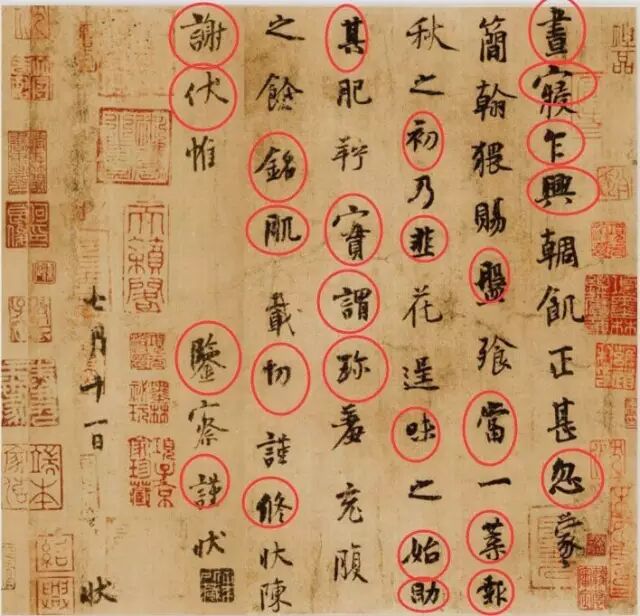 晝寢乍興輖飢正甚忽蒙
簡翰猥賜盤飧當一葉報
秋之初乃韭花逞味之始助
其肥羜實謂珍羞充腹
之餘銘肌載切謹修狀陳
謝伏惟
鑒察謹狀
七月十一日 狀
項子京家珍藏
紹興